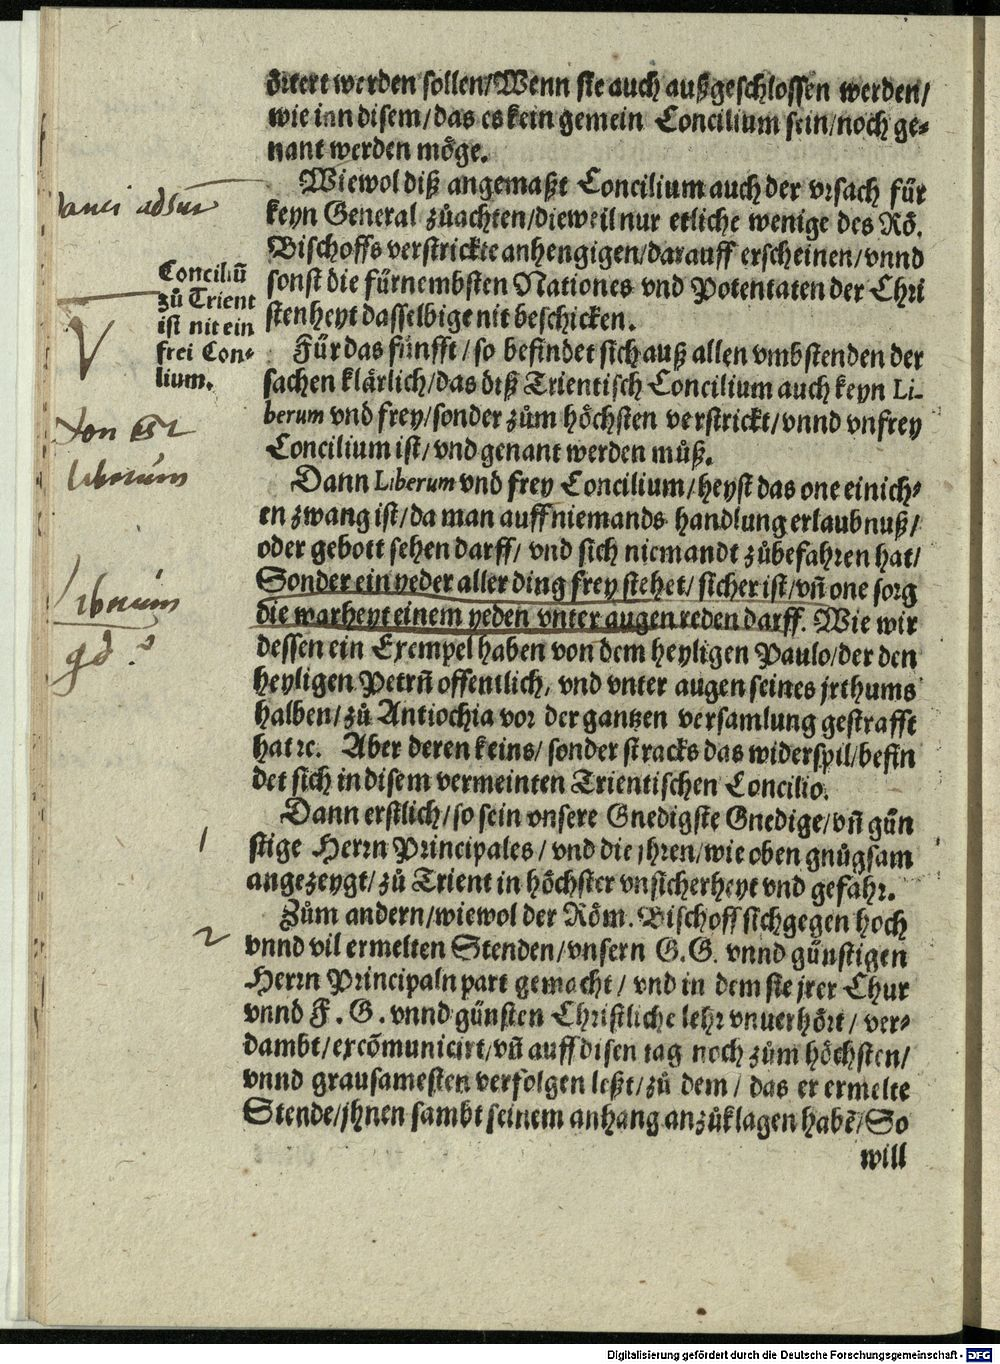 örtert werden sollen/Wenn sie auch außgeschlossen werden/
wie inn disem/das es kein gemein Concilium sein/noch ge⸗
nant werden möge.
Wiewol diß angemaßt Concilium auch der vrsach für
keyn General zůachten/dieweil nur etliche wenige des Rö.
Bischoffs verstrickte anhengigen/darauff erscheinen/vnnd
sonst die fürnembsten Nationes vnd Potentaten der Chri
stenheyt dasselbige nit beschicken.
Für das fünfft/so befindet sich auß allen vmbstenden der
sachen klärlich/das diß Trientisch Concilium auch keyn Li-
berum vnd frey/sonder zům höchsten verstrickt/vnnd vnfrey
Concilium ist/vnd genant werden můß.
Dann Liberum vnd frey Concilium/heyst das one einich⸗
en zwang ist/da man auff niemands handlung erlaubnuß/
oder gebott sehen darff/vnd sich niemandt zůbefahren hat/
Sonder ein yeder aller ding frey stehet/sicher ist/vñ one sorg
die warheyt einem yeden vnter augen reden darff. Wie wir
dessen ein Exempel haben von dem heyligen Paulo/der den
heyligen Petrũ offentlich, vnd vnter augen seines jrthums
halben/zů Antiochia vor der gantzen versamlung gestrafft
hat ꝛc. Aber deren keins/sonder stracks das widerspil/befin
det sich in disem vermeinten Trientischen Concilio.
Dann erstlich/so sein vnsere Gnedigste Gnedige/vñ gün
stige Herrn Principales/vnd die jhren/wie oben gnůgsam
angezeygt/zů Trient in höchster vnsicherheyt vnd gefahr.
Zům andern/wiewol der Röm. Bischoff sich gegen hoch
vnnd vil ermelten Stenden/vnsern G.G. vnnd günstigen
Herrn Principaln part gemacht/vnd in dem sie jrer Chur
vnnd F.G. vnnd günsten Christliche lehr vnuerhört/ver⸗
dambt/excõmunicirt/vñ auff disen tag noch zům höchsten/
vnnd grausamesten verfolgen leßt/zů dem/das er ermelte
Stende/jhnen sambt seinem anhang anzůklagen habẽ/So
will
Conciliũ
zů Trient
ist nit ein
frei Con⸗
lium.
adsunt
Non est
liberum
Liberum
qd.?
1
2
Digitalisierung gefördert durch die Deutsche Forschungsgemeinschaft - DFG